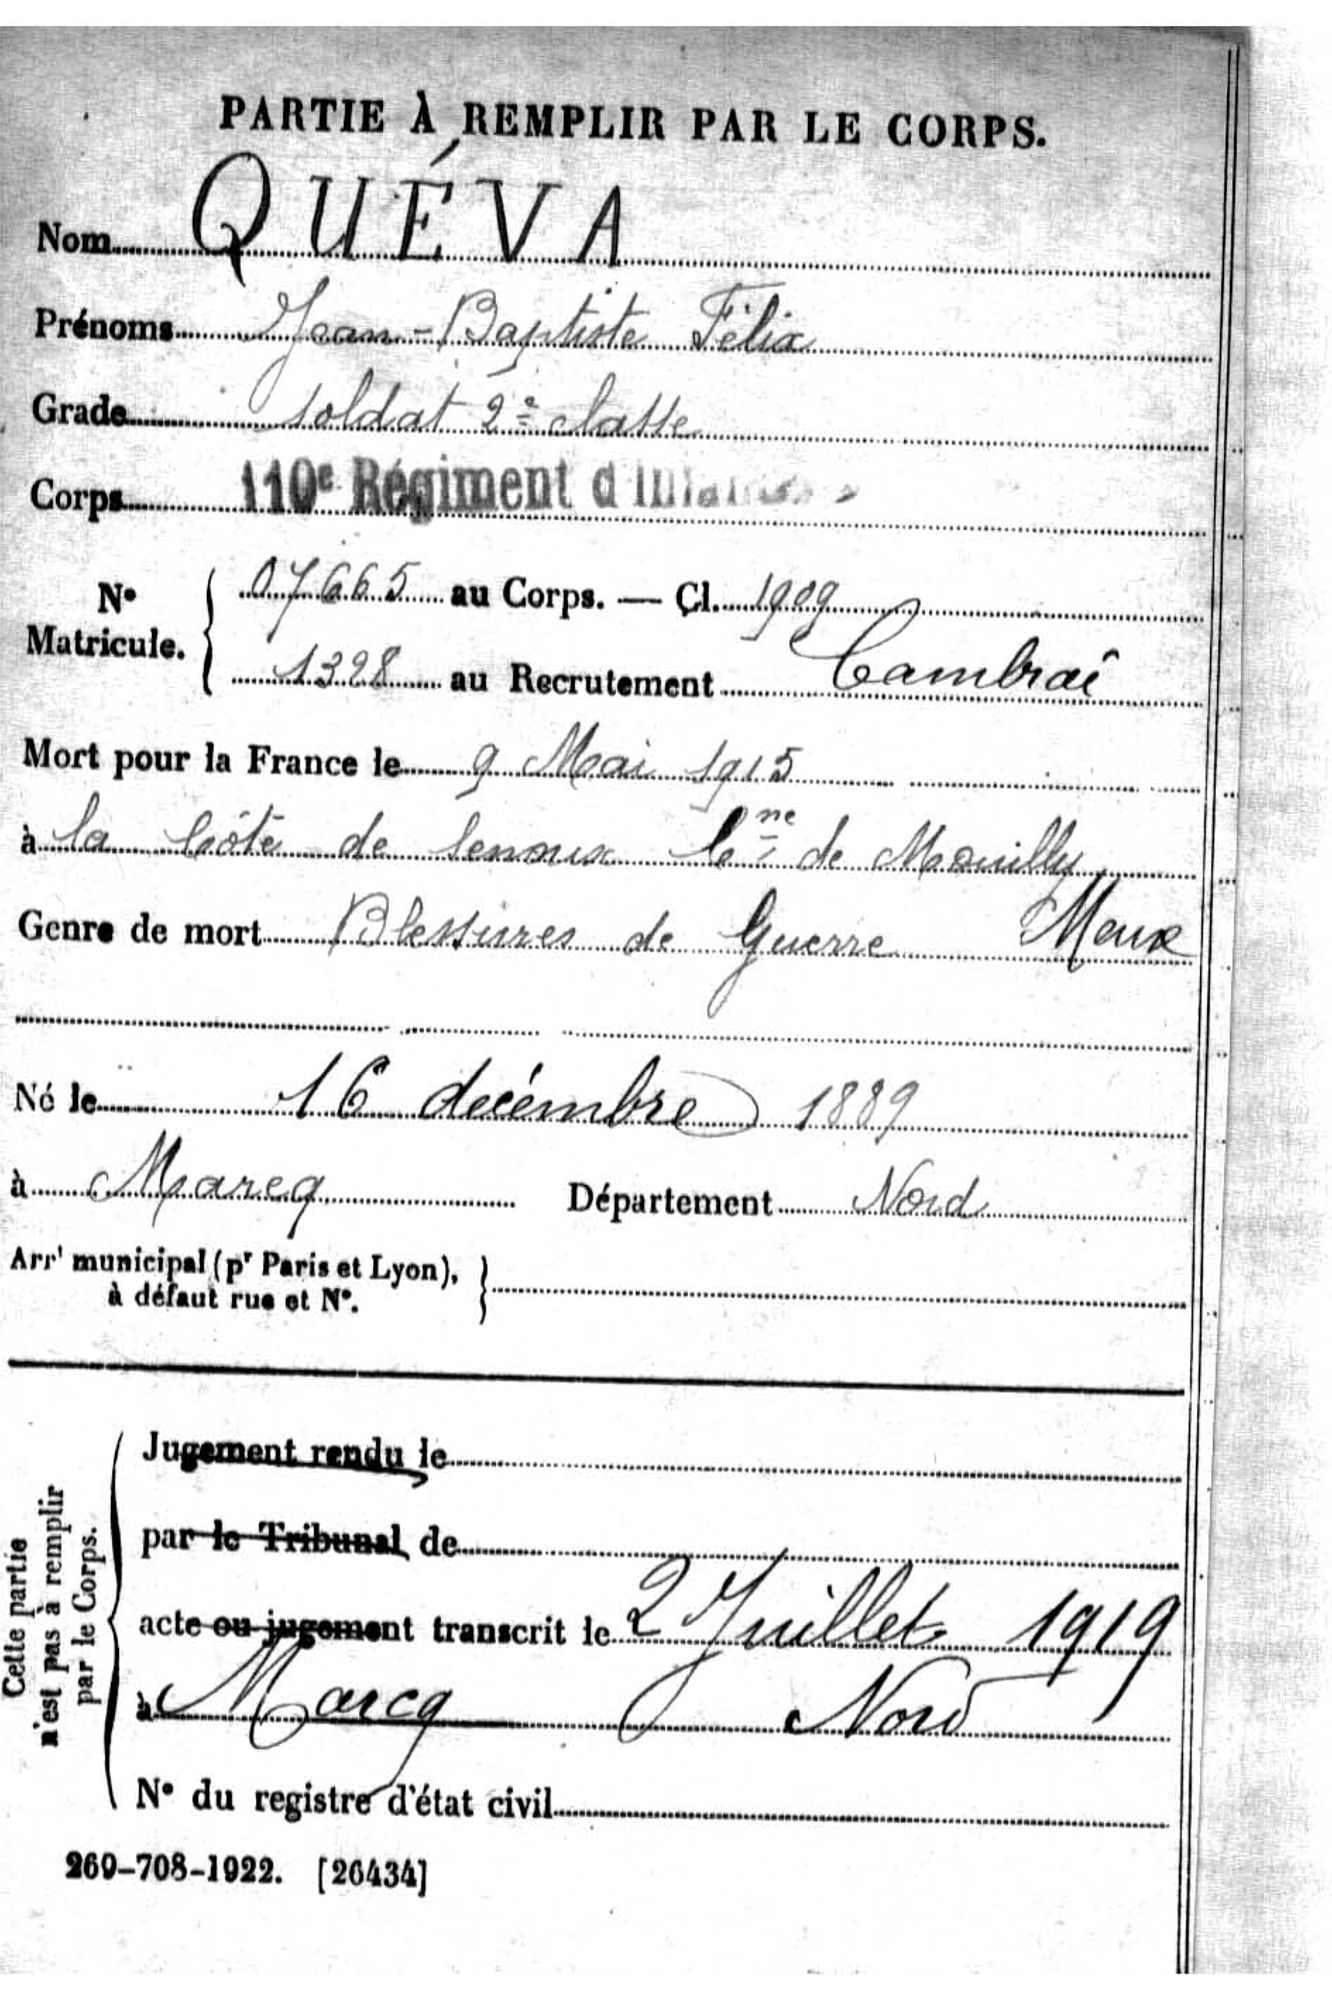 PARTIE À REMPLIR PAR LE CORPS.
Nom QUÉVA
Prénoms Jean-Baptiste Félix
Grade soldat 2e classe
Corps 110e Régiment d'Infanterie
No Matricule. 07665 au Corps. — Cl. 1909
1328 au Recrutement Cambrai
Mort pour la France le 9 Mai 1915
à la Côte de Senoux Cne de Mouilly
Genre de mort Blessures de Guerre Meuse
Né le 16 décembre 1889
à Marcq Département Nord
Arrt municipal (pr Paris et Lyon),
à défaut rue et No.
Cette partie
n'est pas à remplir
par le Corps.
Jugement rendu le
par le Tribunal de
acte ou jugement transcrit le 2 Juillet 1919
à Marcq Nord
No du registre d'état civil
269-708-1922. [26434]